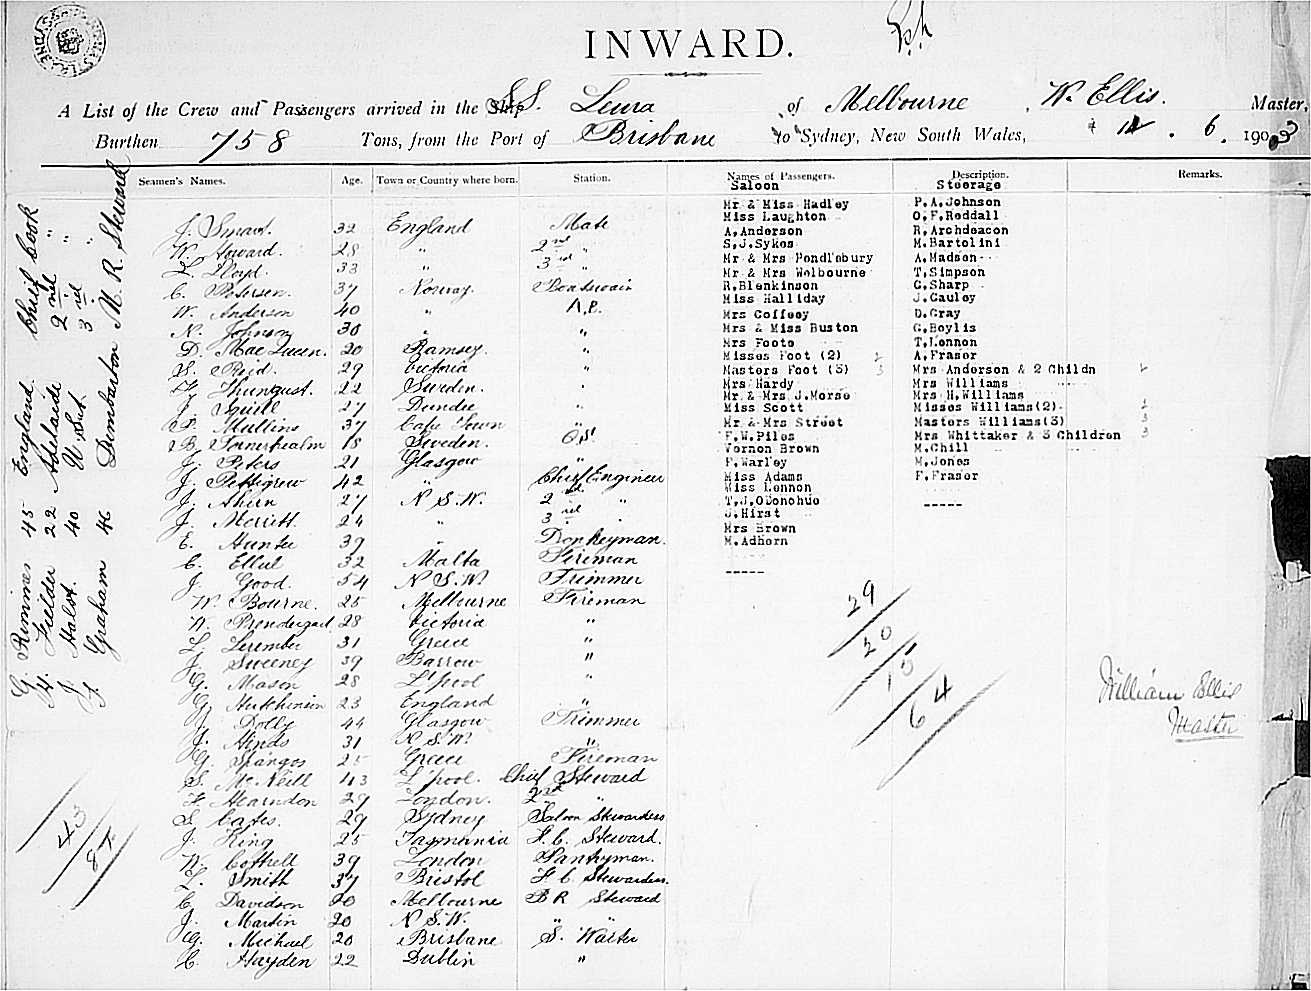 INWARD.
A List of the Crew and Passengers arrived in the Ship S.S. Leura of Melbourne, W. Ellis. Master,
Burthen 758 Tons, from the Port of Brisbane to Sydney, New South Wales, 6. 1903
Seamen's Names. Age. Town or Country where born. Station. Names of Passengers. Description. Remarks.
Saloon Steerage
J. Smart. 32 England Mate
W. Howard. 28 " 2nd "
L. Lloyd. 33 " 3rd "
C. Petersen. 37 Norway. Boatswain
W. Anderson 40 " A.B.
N. Johnson 30 " "
D. MacQueen. 20 Ramsey. "
S. Reid. 29 Victoria "
22 Sweden. "
J. Squill 27 Dundee "
P. Mullins 37 Cape Town "
B. 18 Sweden. O.S.
J. Peters 21 Glasgow "
J. Pettigrew 42 " Chief Engineer
J. Ahern 27 N.S.W. 2nd "
J. Merritt. 24 " 3rd "
E. Hunter 39 " Donkeyman.
C. Ellul 32 Malta Fireman
J. Good. 54 N.S.W. Trimmer
W. Bourne. 25 Melbourne Fireman
W. Prendergast 28 Victoria "
L. 31 Greece "
J. Sweeney 39 Barrow "
G. Mason 28 L'pool "
G. Hutchinson 23 England "
J. Dolly 44 Glasgow Trimmer
J. Hinds 31 N.S.W. "
G. Spangos 25 Greece Fireman
S. McNeill 43 L'pool. Chief Steward
F. Hearndon 29 London. 2nd "
S. Cates. 29 Sydney Saloon Stewardess
J. King 25 Tasmania F.C. Steward.
W. Cottrell 39 London Pantryman.
L. Smith 37 Bristol F C Stewardess.
C. Davidson 20 Melbourne B R Steward
J. Martin 20 N.S.W. " "
G. Michael 20 Brisbane S. Waiter
C. Hayden 22 Dublin "
G. Rimmer 45 England. Chief Cook
H. Fielder 22 Adelaide 2nd "
J. Halst. 40 3rd "
F. Graham 46 Dumbarton M. R. Steward
43
Mr & Miss Hadley
Miss Laughton
A.Anderson
S.J.Sykes
Mr & Mrs Pendlebury
Mr & Mrs Welbourne
R.Blenkinson
Miss Halliday
Mrs Coffeey
Mrs & Miss Buston
Mrs Foote
Misses Foot (2) 2
Masters Foot (3) 3
Mrs Hardy
Mr & Mrs J.Morse
Miss Scott
Mr & Mrs Street
F.W.Piles
Vernon Brown
F.Warley
Miss Adams
Miss Lennon
T.J.ODonohue
J.Hirst
Mrs Brown
M.Adhern
-----
P.A.Johnson
O.F.Reddall
R.Archdeacon
M.Bartolini
A.Madsen
T.Simpson
G.Sharp
J.Cauley
D.Gray
G.Baylis
T.Lennon
A.Fraser
Mrs Anderson & 2 Childn 2
Mrs Williams
Mrs H.Williams
Misses Williams(2). 2
Masters Williams(3) 3
Mrs Whittaker & 3 Children 3
M.Ghill
M.Jones
F.Fraser
-----
29
20
15
64
William Ellis
Master